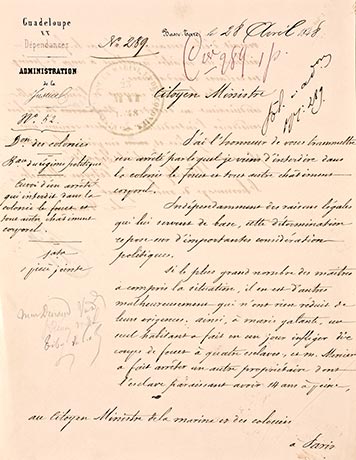 Guadeloupe
ET
Dépendances
ADMINISTRATION
de la
Justice
N° 52
Don des colonies
Bau du régime politique
Envoi d'un arrêté
qui interdit dans la
colonie le fouet et
tout autre châtiment
corporel.
1 pièce jointe
Basse-Terre, le 28 Avril 1848
N° 289.
289 1 p
Citoyen Ministre
J'ai l'honneur de vous transmettre
un arrêté par lequel je viens d'interdire dans
la colonie le fouet et tout autre châtiment
corporel.
Indépendamment des raisons légales
qui lui servent de base, cette détermination
repose sur d'importantes considérations
politiques.
Si le plus grand nombre des maîtres
a compris la situation, il en est d'autres
malheureusement qui n'ont rien réduit de
leurs exigences. ainsi, à marie galante, un
seul habitant a fait en un jour infliger dix
coups de fouet à quatre esclaves, et m.
a fait arrêter un autre propriétaire dont
l'esclave paraissant avoir 14 ans à peine,
au Citoyen Ministre de la marine et des colonies
à Paris